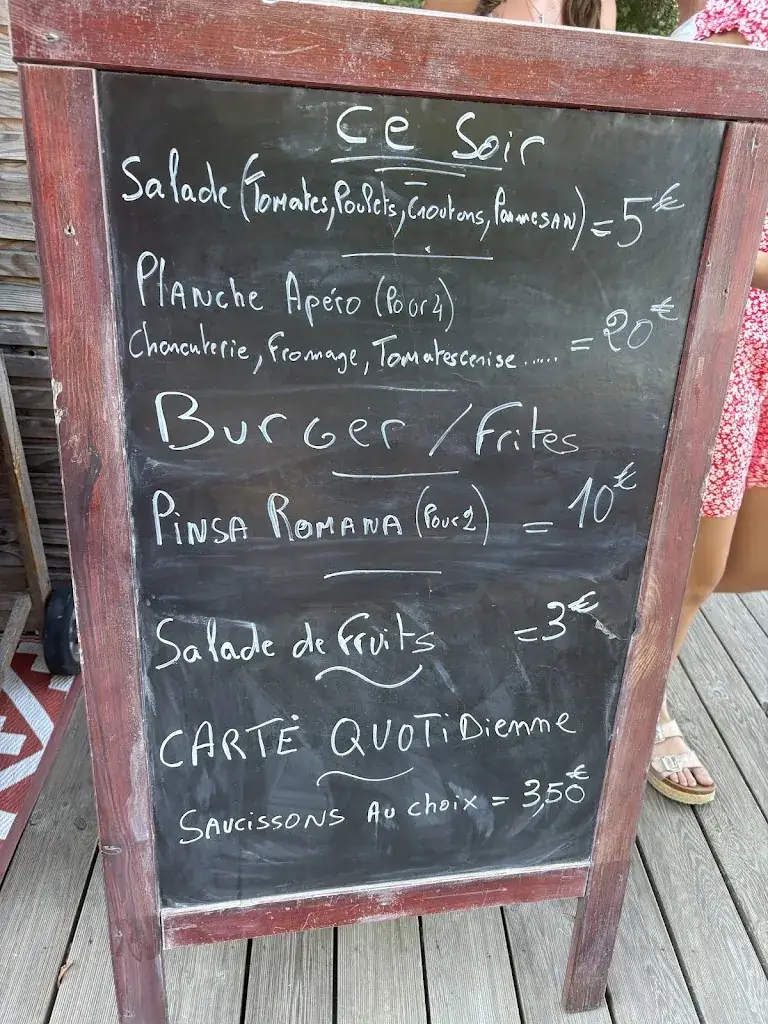 Ce Soir
Salade (Tomates, Poulets, Croutons, Parmesan) = 5€
Planche Apéro (Pour 4)
Charcuterie, Fromage, Tomates cerise ..... = 20€
Burger / Frites
Pinsa Romana (Pour 2) = 10€
Salade de Fruits = 3€
CARTE QUOTiDienne
Saucissons Au choix = 3,50€